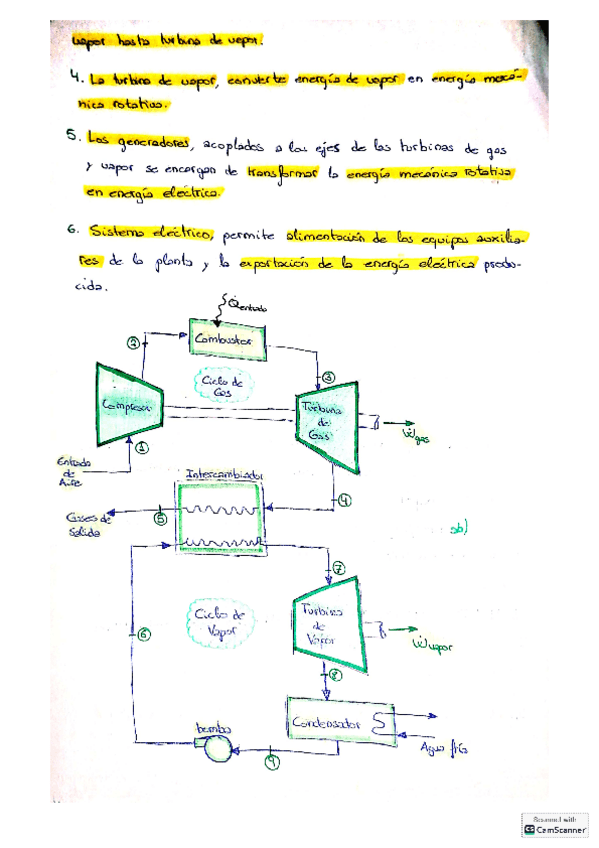 vapor hasta turbina de vapor.
4. La turbina de vapor, convierte energía de vapor en energía mecá-
nica rotativa.
5. Los generadores, acoplados a los ejes de las turbinas de gas
y vapor se encargan de transformar la energía mecánica rotativa
en energía eléctrica.
6. Sistema eléctrico, permite alimentación de los equipos auxilia-
res de la planta y la exportación de la energía eléctrica produ-
cida.
Q̇entrada
Combustor
2
3
Ciclo de
Gas
Compresor
Turbina
de
Gas
Ẇgas
1
Entrada
de
Aire
Intercambiador
4
5
Gases de
Salida
sb)
7
Ciclo de
Vapor
Turbina
de
Vapor
6
Ẇvapor
8
bomba
Condensador
9
Agua fría
Scanned with
CS CamScanner